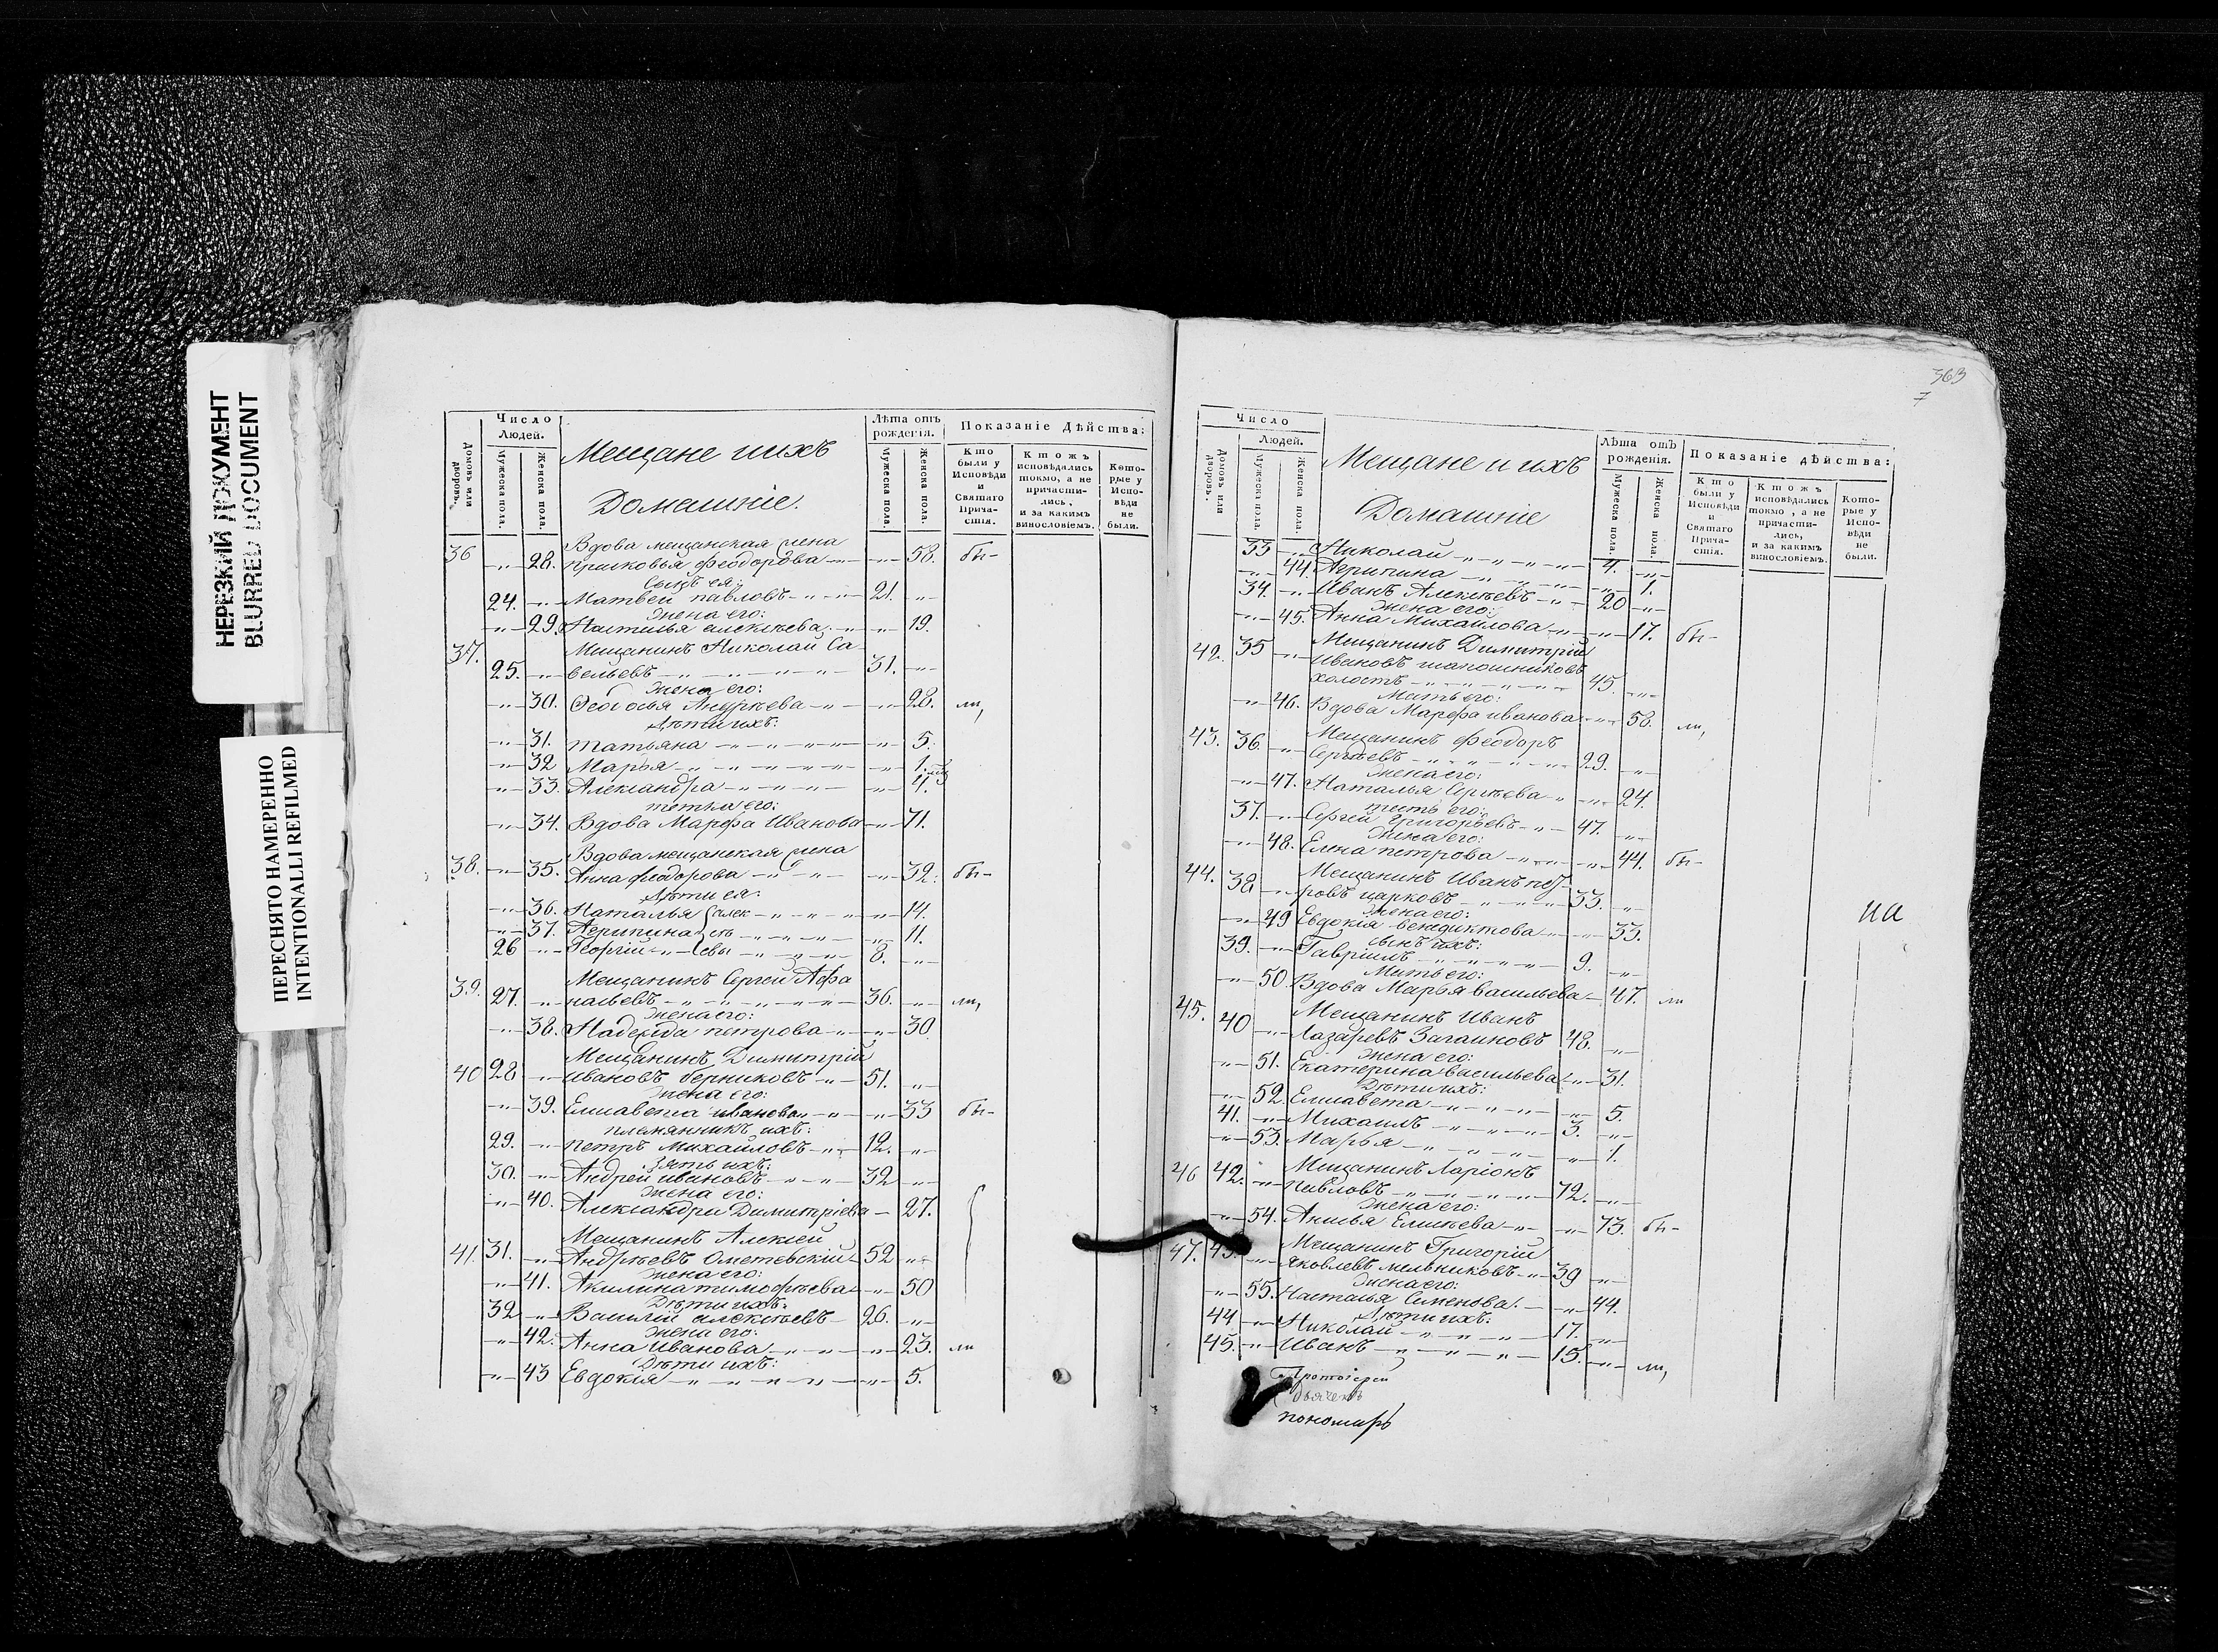 НЕРЕЗКИЙ ДОКУМЕНТ
BLURRED DOCUMENT
ПЕРЕСНЯТО НАМЕРЕННО
INTENTIONALLI REFILMED
Домовъ или дворовъ.
Число Людей.
Мужеска пола.
Женска пола.
Мещане и ихъ
Домашніе.
Лѣта отъ рожденія.
Мужеска пола.
Женска пола.
Показаніе Дѣйства:
Кто были у Исповѣди и Святаго Причастія.
Ктожъ исповѣдались токмо, а не причастились, и за какимъ винословіемъ.
Которые у Исповѣди не были.
Вдова мещанская жена
36 -"- 28. Прасковья Феодорова -"- 58. бы-
Сынъ ея:
24. -"- Матвей Павловъ -"- 21. -"-
Жена его:
-"- 29. Наталья Алексѣева -"- 19.
37. Мещанинъ Николай Са-
25. -"- вельевъ -"- 31. -"-
Жена его:
-"- 30. Феодосья Андрѣева -"- 28. ли,
Дѣти ихъ:
-"- 31. Татьяна -"- 5.
-"- 32 Марья -"- 1.
-"- 33. Александра -"- 4.
тетка его:
-"- 34. Вдова Марфа Иванова -"- 71.
Вдова мещанская жена
38. -"- 35. Анна Феодорова -"- 32. бы-
Дѣти ея:
-"- 36. Наталья Алек -"- 14.
-"- 37. Агрипина сѣ -"- 11.
26 -"- Георгій евы -"- 8. -"-
Мещанинъ Сергей Афа
39. 27. -"- насьевъ -"- 36. -"- ли,
Жена его:
-"- 38. Надежда Петрова -"- 30.
Мещанинъ Димитрій
40 28 -"- Ивановъ Берниковъ -"- 51. -"-
Жена его:
-"- 39. Елисавета Иванова -"- 33 бы-
племянникъ ихъ:
29. -"- Петръ Михайловъ -"- 12. -"-
Зять ихъ:
30. -"- Андрей Ивановъ -"- 32 -"-
Жена его:
-"- 40. Александра Димитріева - 27.
Мещанинъ Алексей
41. 31. -"- Андрѣевъ Ометевскій 52 -"-
Жена его:
-"- 41. Акилина Тимофѣева -"- 50
Дѣти ихъ:
32 -"- Василій Алексѣевъ - 26. -"-
Жена его:
-"- 42. Анна Иванова -"- 23. ли
Дѣти ихъ:
-"- 43 Евдокия -"- 5.
363
7
Домовъ или дворовъ.
Число Людей.
Мужеска пола.
Женска пола
Мещане и ихъ
Домашніе
Лѣта отъ рожденія.
Мужеска пола.
Женска пола.
Показаніе дѣйства:
Кто были у Исповѣди и Святаго Причастія.
Ктожъ исповѣдались токмо, а не причастились, и за какимъ винословіемъ.
Которые у Исповѣди не были.
33 -"- Николай -"- 4. -"-
-"- 44. Агрипина -"- 1.
34. -"- Иванъ Алексѣевъ -"- 20 -"-
Жена его:
-"- 45. Анна Михайлова -"- 17. бы-
42. 35 -"- Мещанинъ Димитрій
Ивановъ Шапошниковъ
холостъ -"- 45. -"-
Мать его:
-"- 46. Вдова Марфа Иванова -"- 58. ли,
43. 36. -"- Мещанинъ Феодоръ
Сергѣевъ -"- 29. -"-
Жена его:
-"- 47. Наталья Сергѣева -"- 24.
тесть его:
37. -"- Сергей Григорьевъ -"- 47. -"-
Жена его:
-"- 48. Елена Петрова -"- 44. бы-
44. Мещанинъ Иванъ Пет-
38 -"- ровъ Царковъ -"- 33. -"-
Жена его:
-"- 49 Евдокія Венедиктова -"- 33.
сынъ ихъ:
39. -"- Гавріилъ -"- 9. -"-
Мать его:
-"- 50 Вдова Марья Васильева - 47. ли
на
45. Мещанинъ Иванъ
40 -"- Лазаревъ Загаиновъ 48. -"-
Жена его:
-"- 51. Екатерина Васильева -"- 31.
Дѣти ихъ:
-"- 52. Елисавета -"- 5.
41. -"- Михаилъ -"- 3. -"-
-"- 53. Марья -"- 1.
46 42. Мещанинъ Ларіонъ
-"- Павловъ -"- 72. -"-
Жена его:
-"- 54. Анисья Елисѣева -"- 73. бы-
47. 43. Мещанинъ Григорій
-"- Яковлевъ Мельниковъ -"- 39 -"-
Жена его:
-"- 55. Наталья Семенова -"- 44.
Дѣти ихъ:
44 -"- Николай -"- 17. -"-
45. -"- Иванъ -"- 15. -"- ли,
Протоіерей
Дьячекъ
пономарь